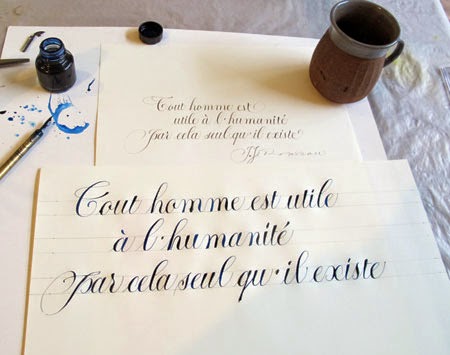 Tout homme est
utile à l'humanité
par cela seul qu'il existe
JJ Rousseau
Tout homme est utile
à l'humanité
par cela seul qu'il existe